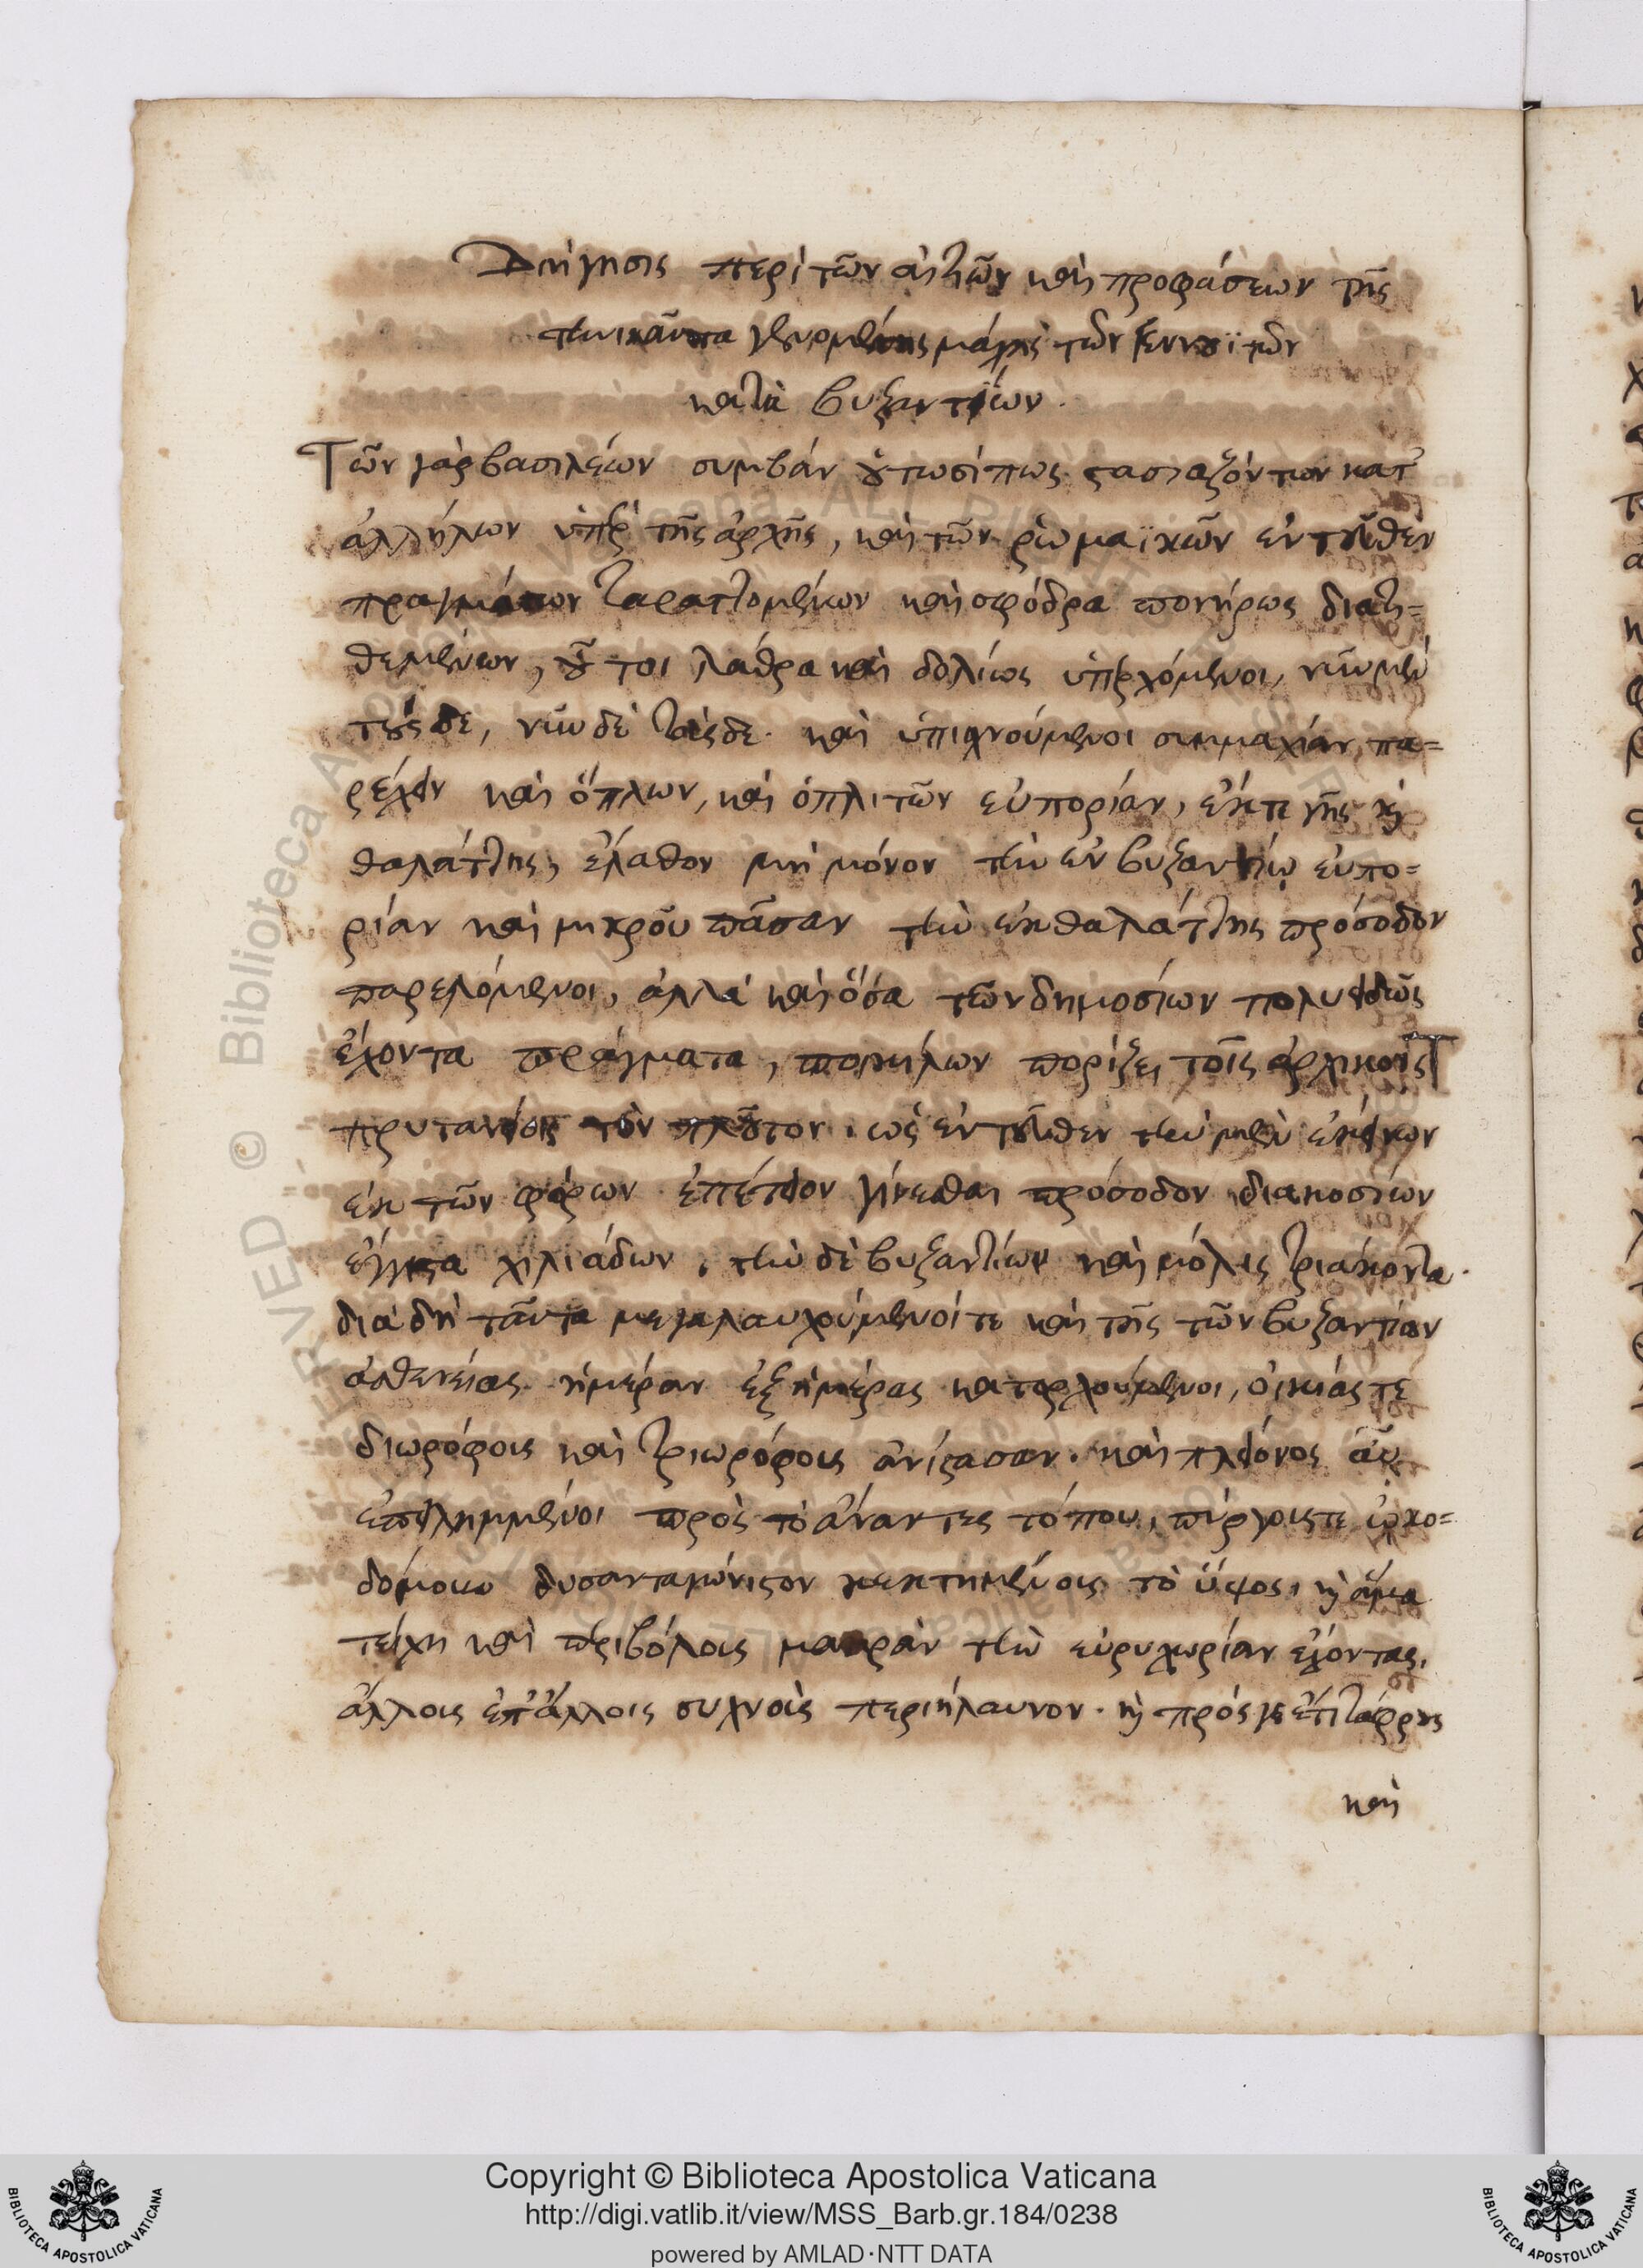 Διήγησις περὶ τῶν αἰτιῶν καὶ προφάσεων τῆς
τηνικαῦτα γενομένης μάχης τῶν Γεννουϊτῶν
κατὰ βυζαντίων.
Τῶν γὰρ βασιλέων συμβὰν οὑτωσί πως στασιαζόντων κατ'
ἀλλήλων ὑπὲρ τῆς ἀρχῆς, καὶ τῶν ῥωμαϊκῶν ἐντεῦθεν
πραγμάτων ταραττομένων καὶ σφόδρα πονήρως διατι=
θεμένων, οὗτοι λάθρα καὶ δολίως ὑπερχόμενοι, νῦν μὲν
τούσδε, νῦν δὲ τούσδε. καὶ ὑπισχνούμενοι συμμαχίαν πα=
ρέχειν καὶ ὅπλων, καὶ ὁπλιτῶν εὐπορίαν, ἔκ τε γῆς καὶ
θαλάττης, ἔλαθον μὴ μόνον τὴν ἐν βυζαντίῳ εὐπο=
ρίαν καὶ μικροῦ πᾶσαν τὴν ἐκ θαλάττης πρόσοδον
παρελόμενοι, ἀλλὰ καὶ ὅσα τῶν δημοσίων πολυειδῶς
ἔχοντα πράγματα, ποικίλων πορίζει τοῖς ἀρχικοῖς
πρυτανείοις τὸν πλοῦτον. ὡς ἐντεῦθεν τὴν μὲν ἐκείνων
ἐκ τῶν φόρων ἐπέτειον γίνεσθαι πρόσοδον διακοσίων
ἔγγιστα χιλιάδων, τὴν δὲ βυζαντίων καὶ μόλις τριάκοντα.
διὰ δὴ ταῦτα μεγαλαυχούμενοί τε καὶ τῆς τῶν βυζαντίων
ἀσθενείας ἡμέραν ἐξ ἡμέρας κατορχούμενοι, οἰκίας τε
διωρόφοις καὶ τριωρόφοις ἀνίστασαν. καὶ πλείονος ἀεὶ
ἐπειλημμένοι πρὸς τὸ ἄναντες τόπου, πύργοις τε ᾠκο=
δόμουν δυσανταγώνιστον κεκτημένοις τὸ ὕψος, καὶ ἅμα
τείχη καὶ περιβόλοις μακρὰν τὴν εὐρυχωρίαν ἔχοντας,
ἄλλοις ἐπ' ἄλλοις συχνοὺς περιήλαυνον. καὶ πρός γε ἔτι τάφρους
καὶ
Copyright © Biblioteca Apostolica Vaticana
http://digi.vatlib.it/view/MSS_Barb.gr.184/0238
powered by AMLAD·NTT DATA
BIBLIOTECA APOSTOLICA VATICANA
BIBLIOTECA APOSTOLICA VATICANA